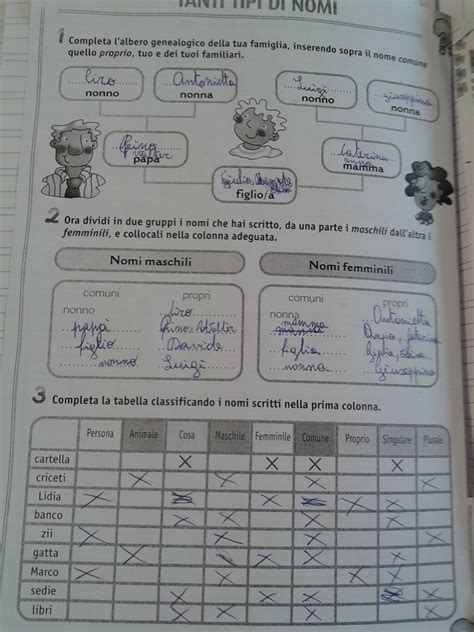 TANTI TIPI DI NOMI
1 Completa l'albero genealogico della tua famiglia, inserendo sopra il nome comune
quello proprio, tuo e dei tuoi familiari.
Ciro
nonno
Antonietta
nonna
Luigi
nonno
giuseppina
nonna
papà
Caterina
mamma
figlio/a
2 Ora dividi in due gruppi i nomi che hai scritto, da una parte i maschili dall'altra i
femminili, e collocali nella colonna adeguata.
Nomi maschili
Nomi femminili
comuni propri
nonno Ciro
papà
figlio Davide
nonno Luigi
comuni propri
nonna Antonietta
mamma
figlia
nonna Giuseppina
3 Completa la tabella classificando i nomi scritti nella prima colonna.
Persona Animale Cosa Maschile Femminile Comune Proprio Singolare Plurale
cartella X X X X
criceti X X X X
Lidia
banco
zii
gatta
Marco
sedie
libri